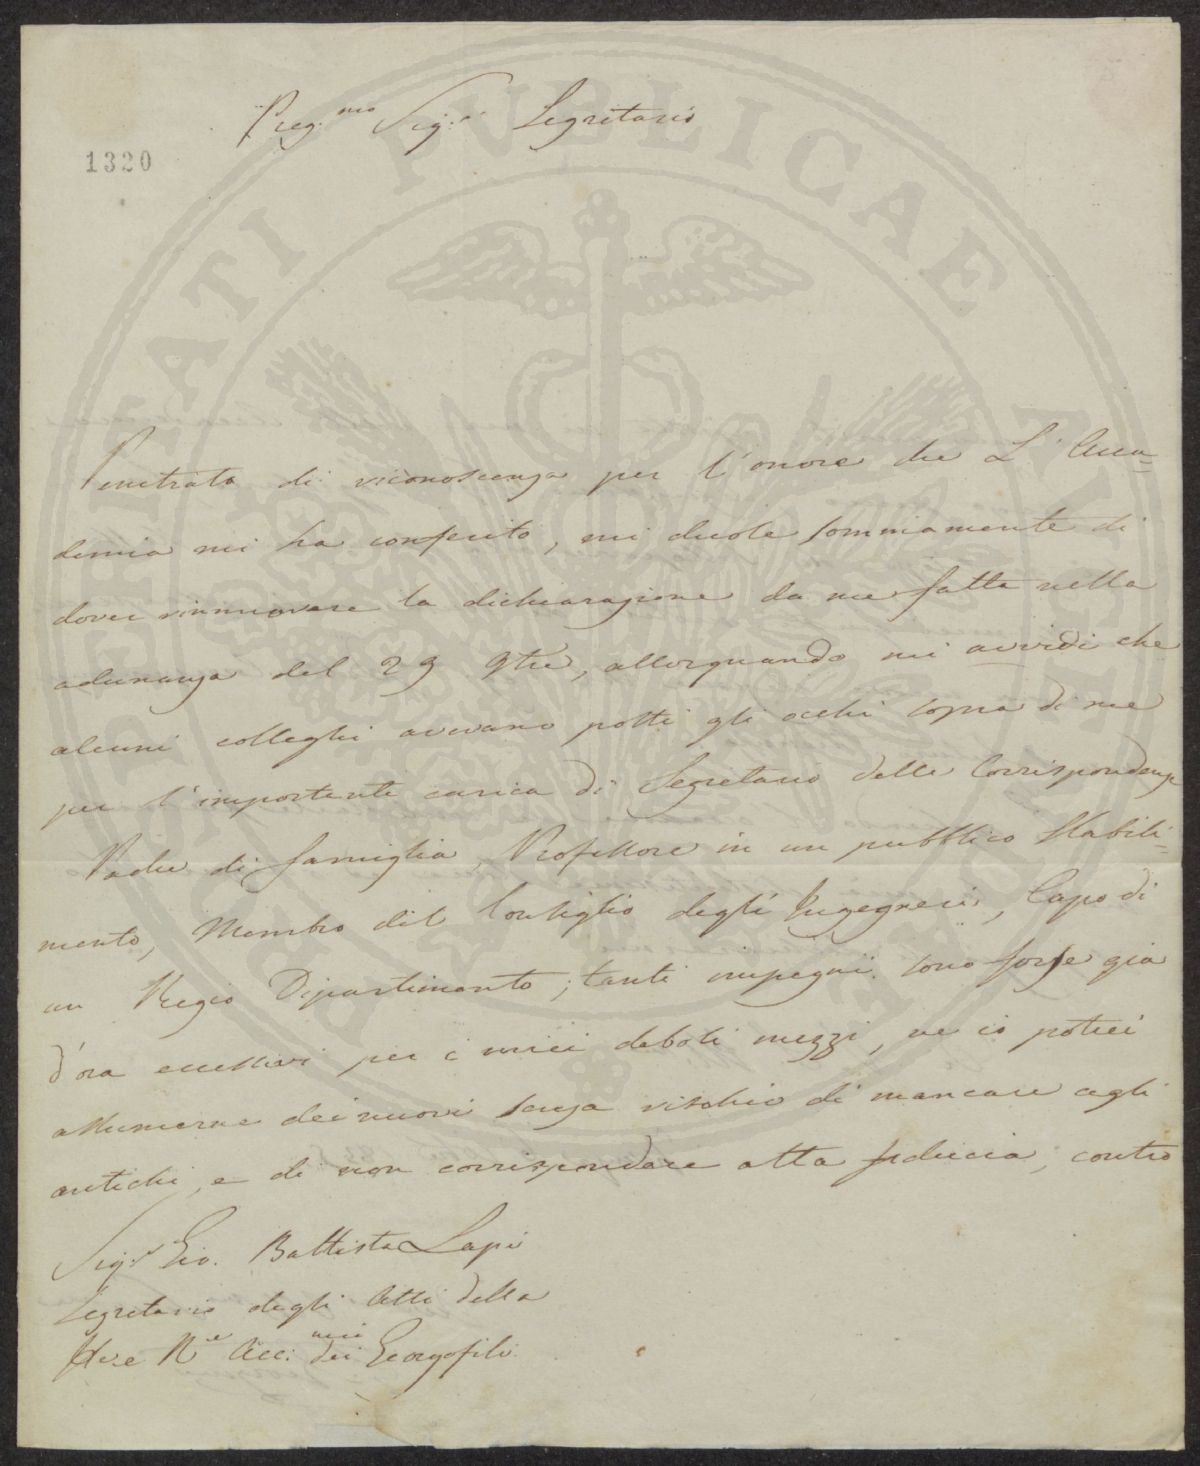 Preg.mo Sig.r Segretario
1320
Penetrato di riconoscenza per l'onore che L'Acca=
demia mi ha conferito, mi duole sommamente di
dover rinnuovare la dichiarazione da me fatta nella
adunanza del 29 9bre, allorquando mi avvidi che
alcuni colleghi avevano posti gli occhi sopra di me
per l'importente carica di Segretario delle Corrispondenze
Padre di famiglia, Professore in un pubblico Stabili=
mento, Membro del Consiglio degli Ingegneri, Capo di
un Regio Dipartimento; tanti impegni sono forse già
d'ora eccessivi per i miei deboli mezzi, ne io potrei
assumerne dei nuovi senza rischio di mancare agli
antichi, e di non corrispondere alla fiducia, contro
Sig.r Gio. Battista Lapi
Segretario degli Atti della
R.e Acc. dei Georgofili
PVBLICAE